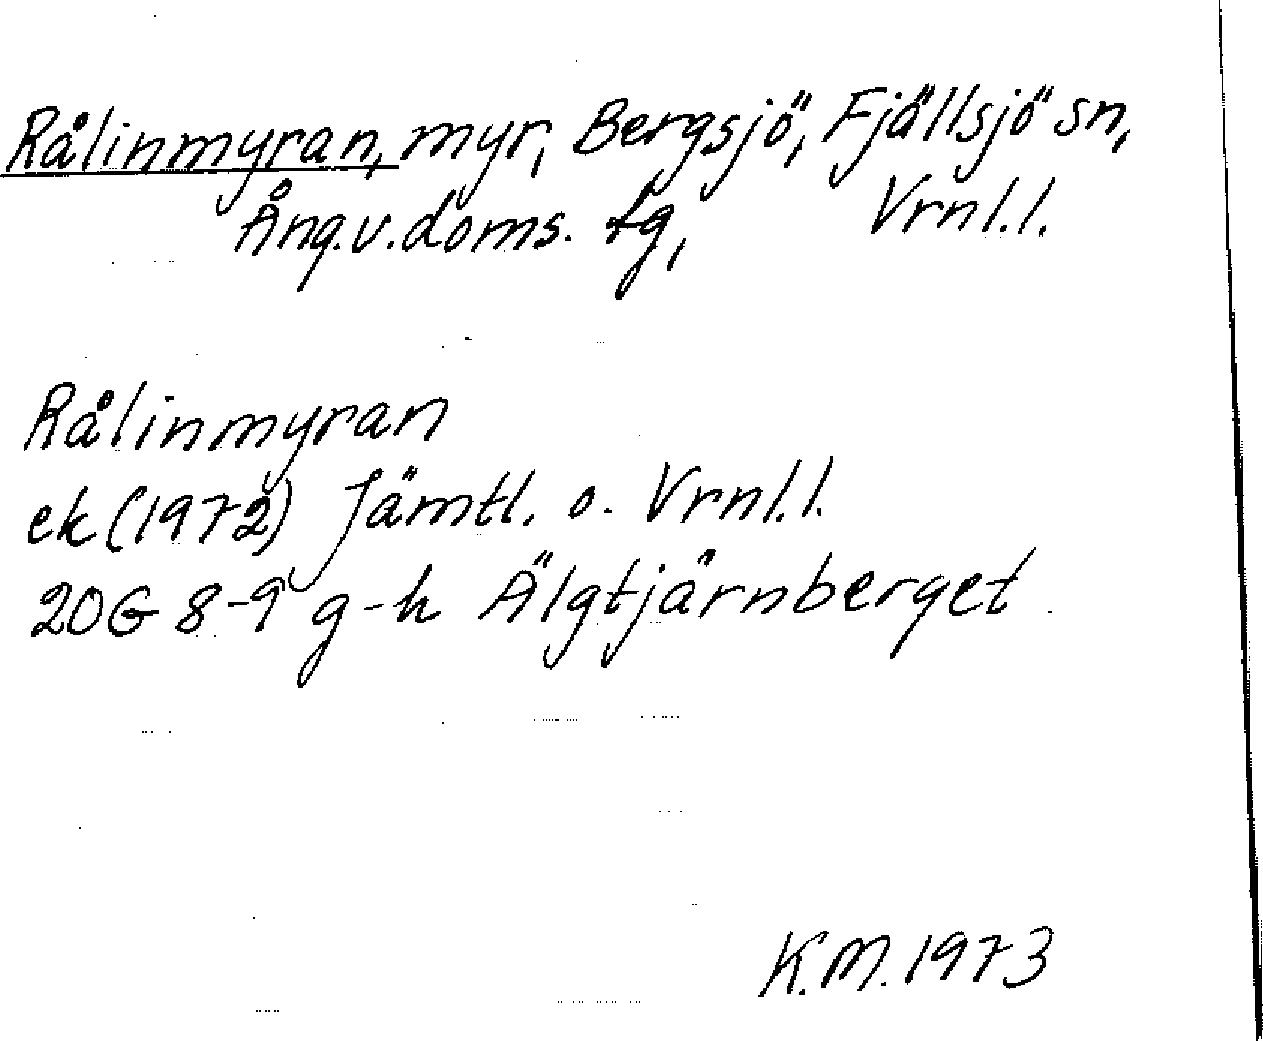 Rålinmyran, myr, Bergsjö, Fjällsjö sn,
Ång.v.doms. tg, Vrnl.l.
Rålinmyran
ek (1972) Jämtl. o. Vrnl.l.
20G 8-9 g-h Älgtjärnberget
K.M. 1973